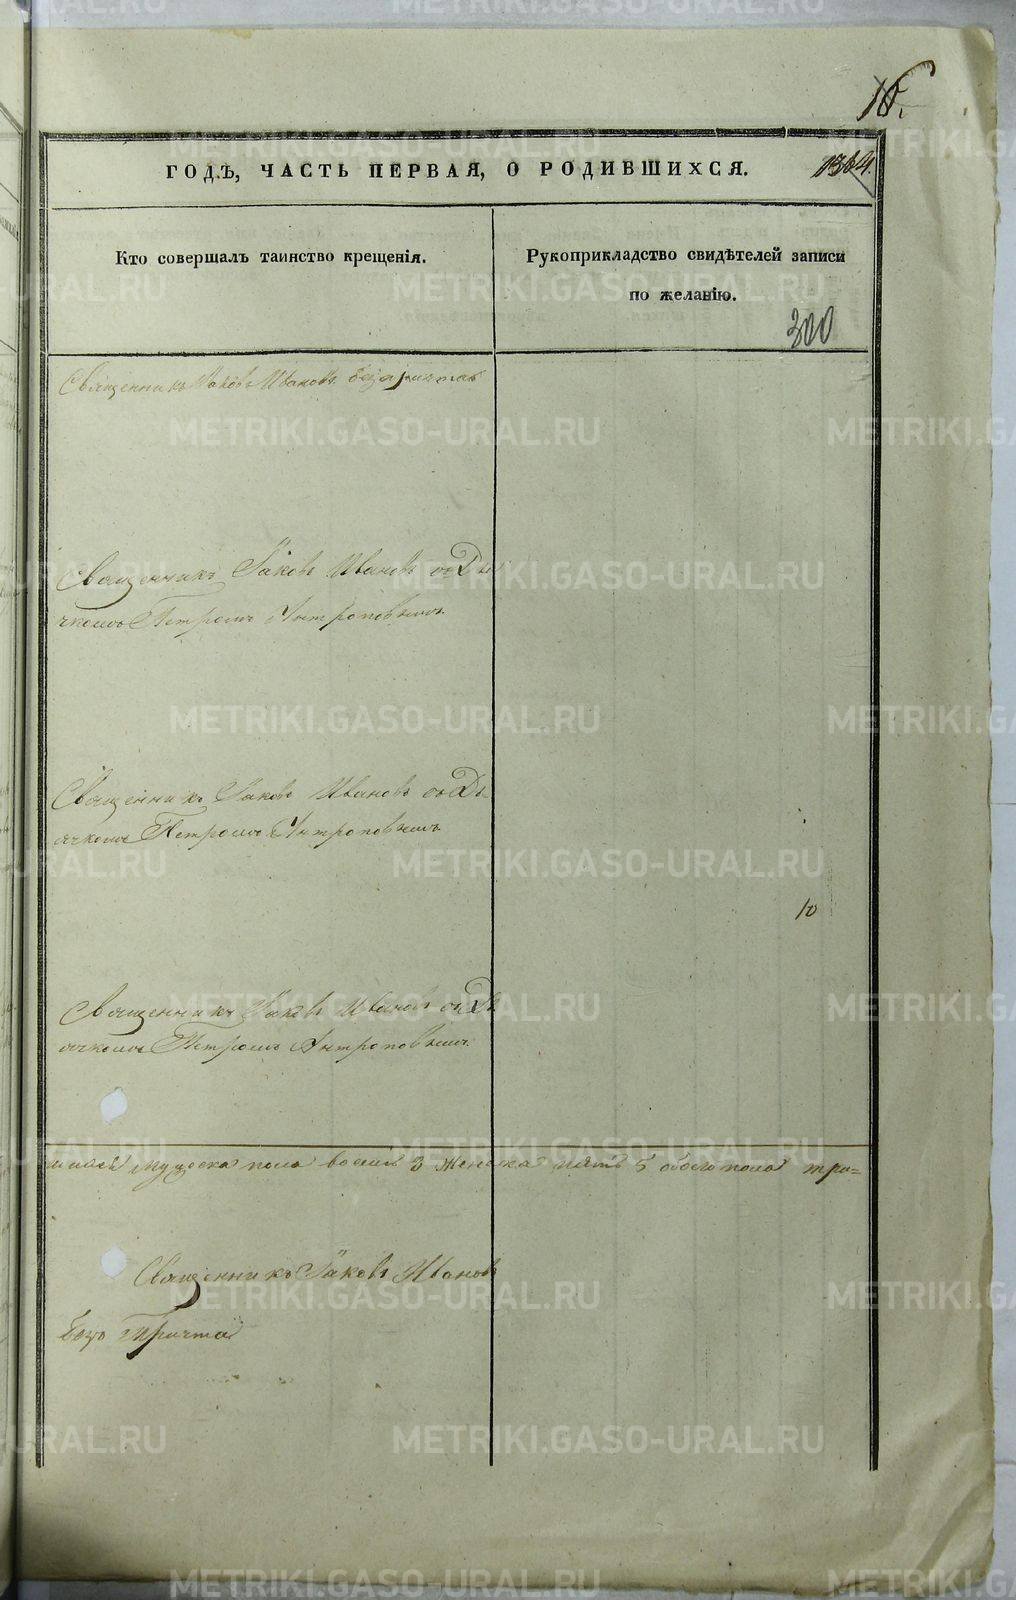 16.
ГОДЪ, ЧАСТЬ ПЕРВАЯ, О РОДИВШИХСЯ.
1364.
Кто совершалъ таинство крещенія.
Рукоприкладство свидѣтелей записи
по желанію.
300
Священникъ Іаковъ Ивановъ безъ причта
Священникъ Іаковъ Ивановъ съ Дья
чкомъ Петромъ Антроповымъ
Священникъ Іаковъ Ивановъ съ Дь
ячкомъ Петромъ Антроповымъ
10
Священникъ Іаковъ Ивановъ съ Дь
ячкомъ Петромъ Антроповымъ
мужеска пола восемь 8 женска пять 5 обоего пола три=
Священникъ Іаковъ Ивановъ
безъ Причта
METRIKI.GASO-URAL.RU